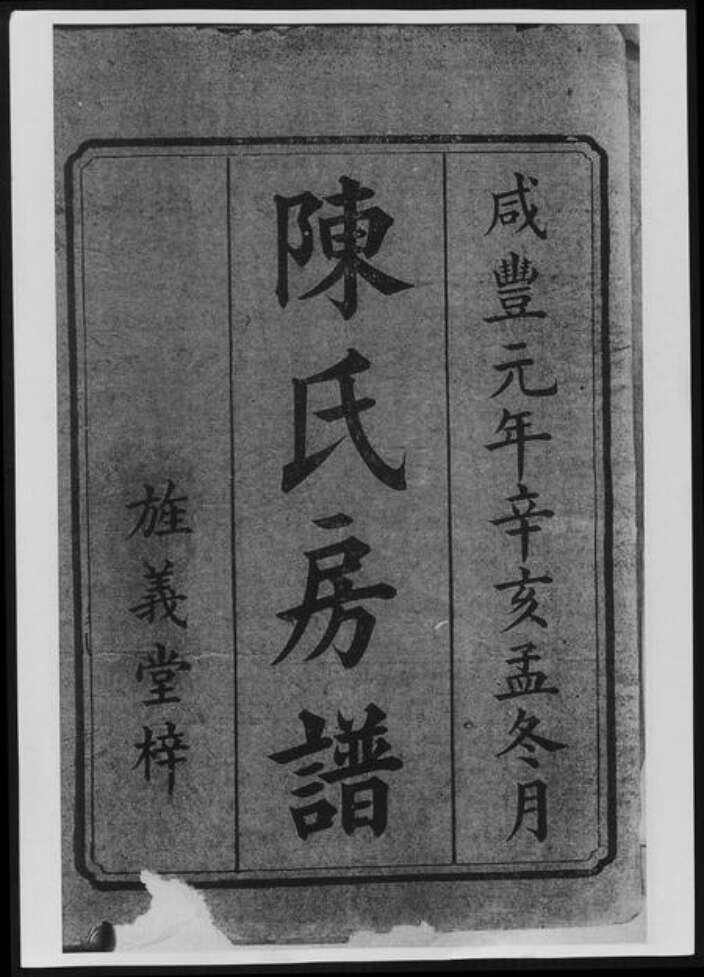 咸豐元年辛亥孟冬月
陳氏房譜
旌義堂梓